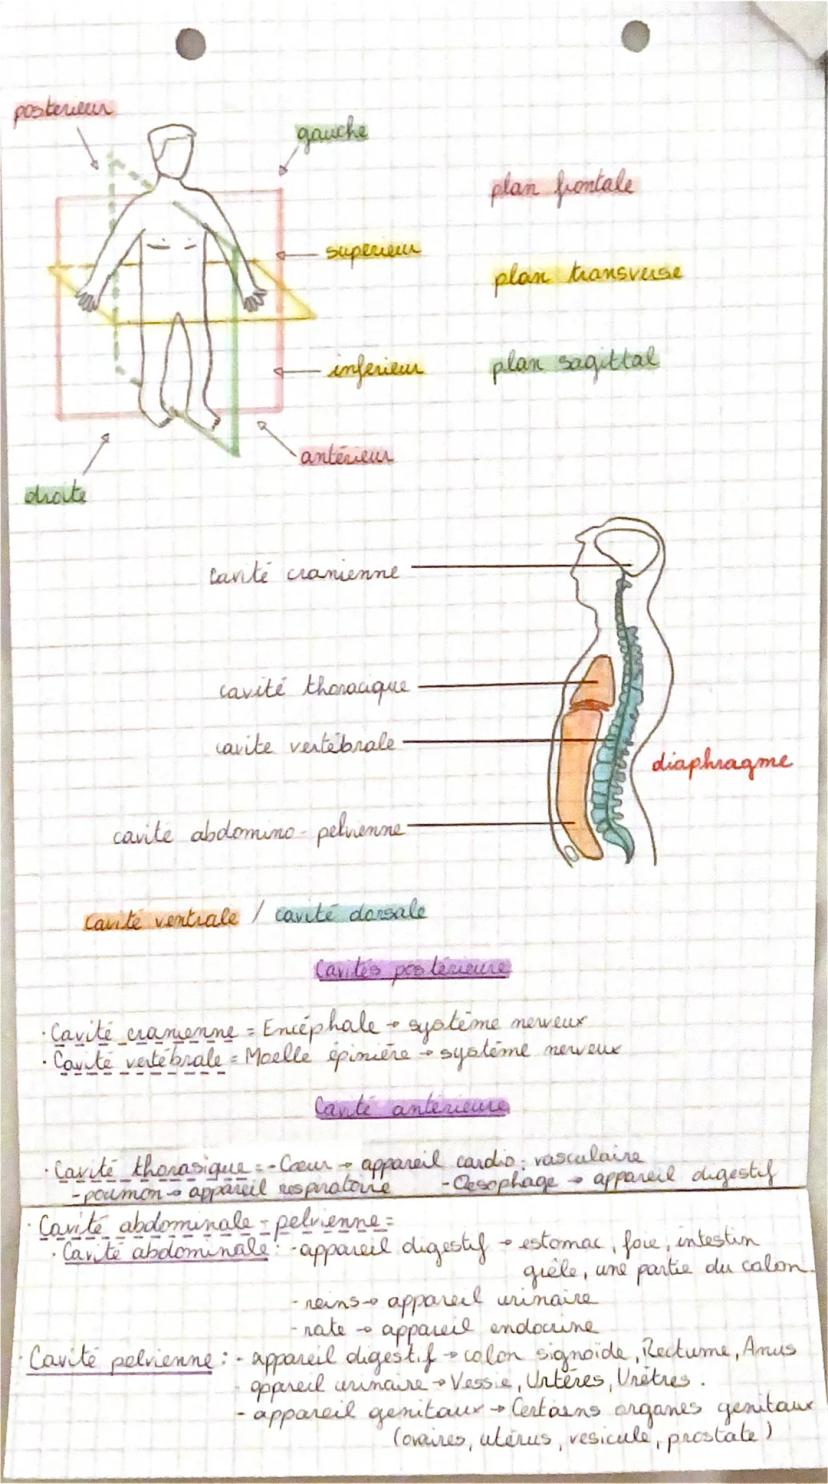 posterieur
gauche
plan frontale
supérieur
plan transverse
inférieur
plan sagittal
antérieur
droite
cavité cranienne
cavité thoracique
cavite vertébrale
diaphragme
cavité abdomino-pelvienne
cavité ventrale / cavité dorsale
Cavités postérieure
· Cavité cranienne = Encéphale → système nerveux
· Cavité vertébrale = Moelle épinière → système nerveux
Cavité antérieure
· Cavité thorasique = - Cœur → appareil cardio-vasculaire
- poumon → appareil respiratoire - Oesophage → appareil digestif
· Cavité abdominale-pelvienne =
· Cavité abdominale : - appareil digestif → estomac, foie, intestin
grêle, une partie du colon.
- reins → appareil urinaire
- rate → appareil endocrine
· Cavité pelvienne : - appareil digestif → colon signoïde, Rectume, Anus
- appareil urinaire → Vessie, Urtères, Urètres.
- appareil genitaux → Certains organes genitaux
(ovaires, utérus, vesicule, prostate)